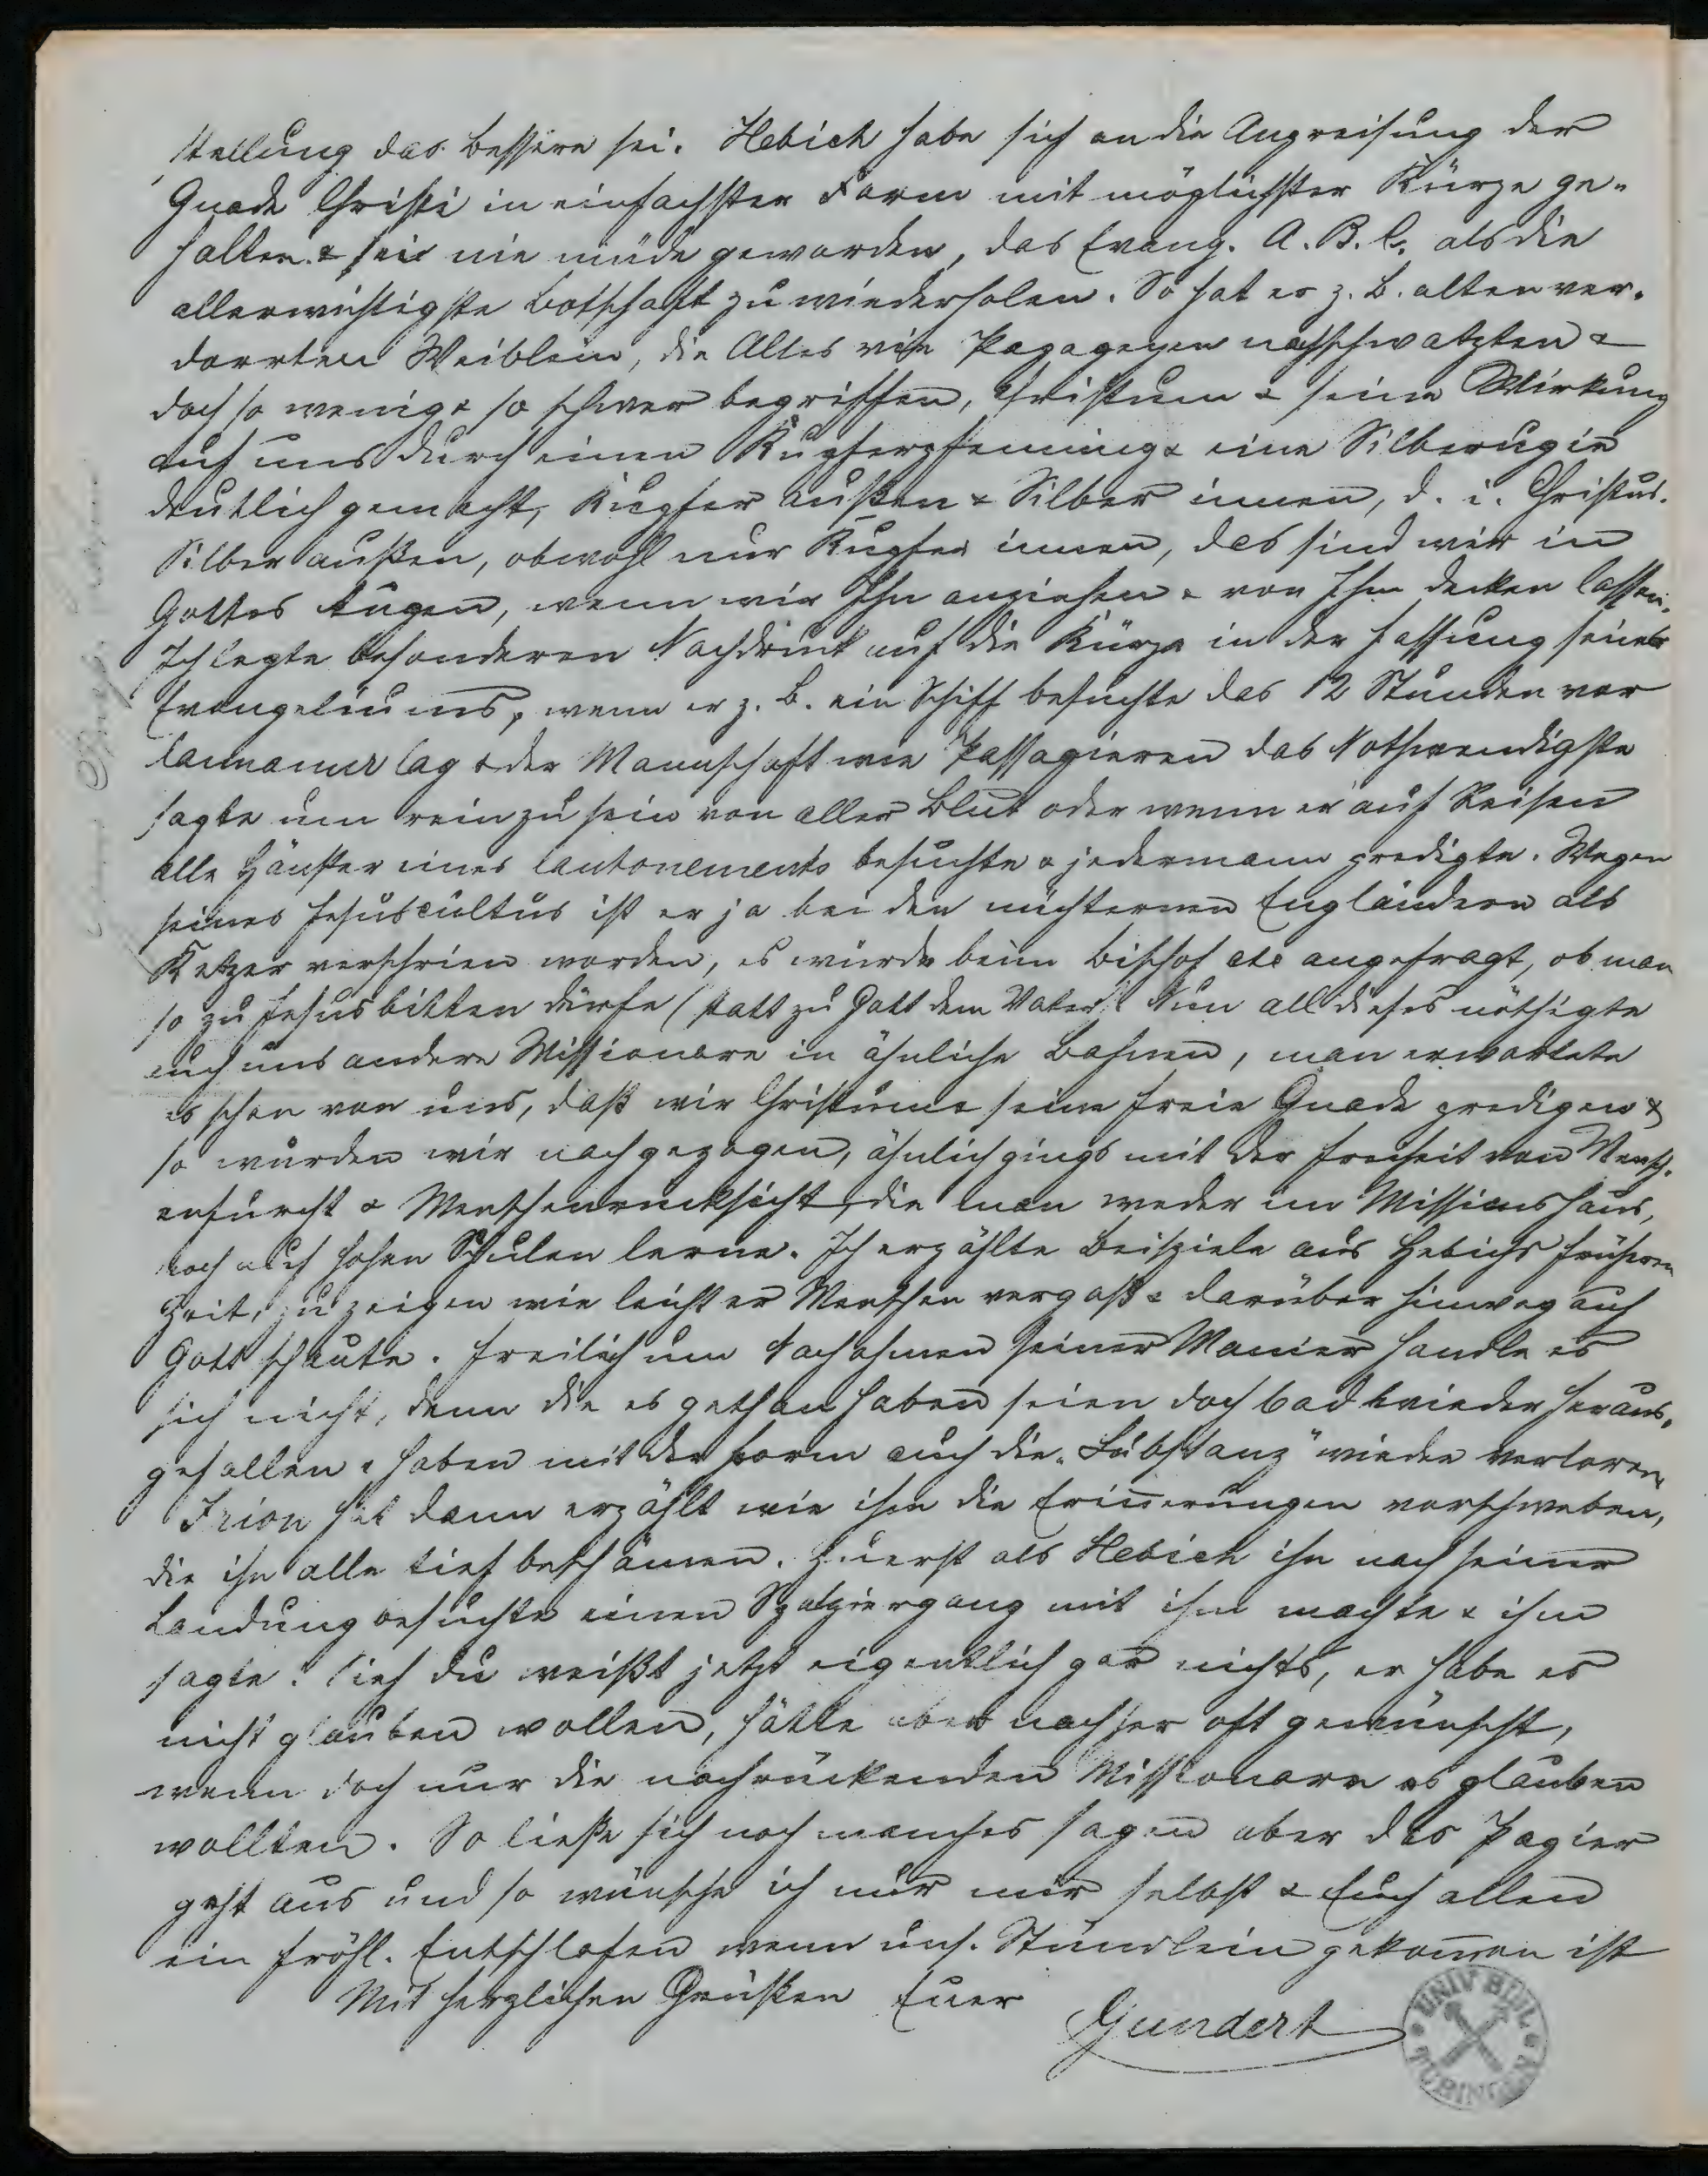 stellung das bessere sei. Hebich habe sich an die Anpreisung der
Gnade Christi in einfachster Form mit möglichster Kürze ge-
halten & sei nie müde geworden, das Evang. A. B. C. als die
allerwichtigste Botschaft zu wiederholen. So hat er z. B. alten ver-
dorrten Weiblein, die Alles wie Papageyen nachschwatzten &
doch so wenig & so schwer begriffen, Christum & seine Wirkung
auf uns durch einen Kupferpfennig & eine Silberrupie
deutlich gemacht, Kupfer außen & Silber innen, d. i. Christus.
Silber außen, obwohl nur Kupfer innen, das sind wir in
Gottes Augen, wenn wir Ihn anziehen & von Ihm decken lassen.
Ich legte besonderen Nachdruck auf die Kürze in der Fassung seines
Evangeliums, wenn er z. B. ein Schiff besuchte das 12 Stunden vor
Cannanur lag & der Mannschaft wie Passagieren das Nothwendigste
sagte um rein zu sein von aller Blut oder wenn er auf Reisen
alle Häuser eines Cantonements besuchte & jedermann predigte. Wegen
seines Jesuscultus ist er ja bei den nüchternen Engländern als
Ketzer verschrien worden, es wurde beim Bischof etc angefragt, ob man
so zu Jesus bitten dürfe (statt zu Gott dem Vater). Nun all dieses nöthigte
auch uns andere Missionare in ähnliche Bahnen, man erwartete
es schon von uns, daß wir Christum & seine freie Gnade predigen &
so wurden wir nachgezogen, ähnlich gings mit der Freiheit von Mensch-
enfurcht & Menschenrücksicht, die man weder im Missionshaus,
noch auf hohen Schulen lerne. Ich erzählte Beispiele aus Hebichs früheren
Zeit, zu zeigen wie leicht er Menschen vergaß & darüber hinweg auf
Gott schaute. Freilich um Nachahmen seiner Manier handle es
sich nicht, denn die es gethan haben seien doch bald wieder heraus-
gefallen & haben mit der Form auch die "Substanz" wieder verloren.
Irion hat dann erzählt wie ihm die Erinnerungen vorschweben,
die ihn alle tief beschämen. Zuerst als Hebich ihn nach seiner
Landung besuchte einen Spatziergang mit ihm machte & ihm
sagte: sieh du weißt jetzt eigentlich gar nichts, er habe es
nicht glauben wollen, hätte aber nachher oft gewünscht,
wenn doch nur die nachrückenden Missionare es glauben
wollten. So ließe sich noch manches sagen aber das Papier
geht aus und so wünsche ich nur mir selbst & Euch allen
ein fröhl. Entschlafen wenn uns. Stündlein gekommen ist
Mit herzlichen Grüßen Euer
Gundert
UNIV. BIBL.
TÜBINGEN